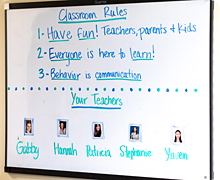 Classroom Rules
1- Have fun! Teachers, parents & kids
2- Everyone is here to learn!
3- Behavior is communication
Your Teachers
Gabby Hannah Patricia Stephanie Yiwen